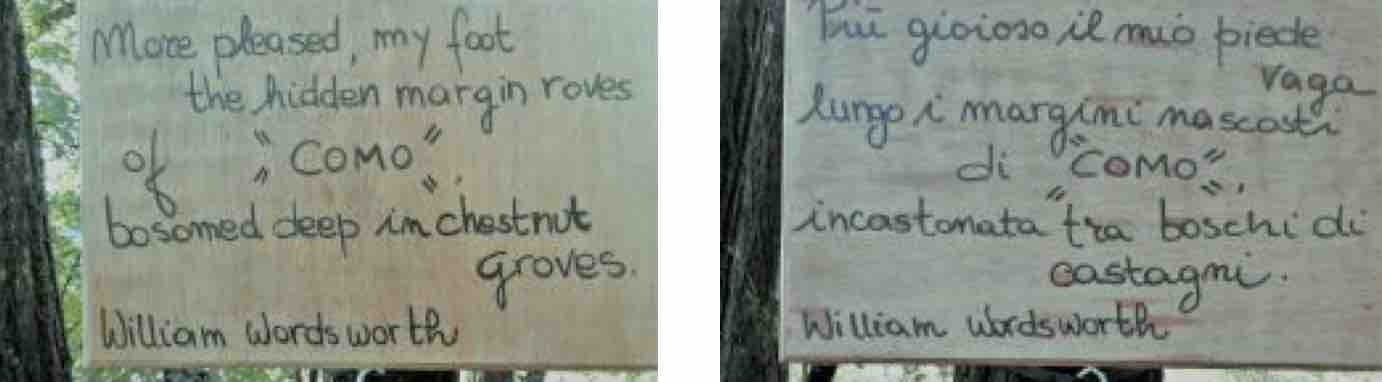 More pleased, my foot
the hidden margin roves
of "COMO",
bosomed deep in chestnut
groves.
William Wordsworth
Più gioioso il mio piede
vaga
lungo i margini nascosti
di "COMO",
incastonata tra boschi di
castagni.
William Wordsworth